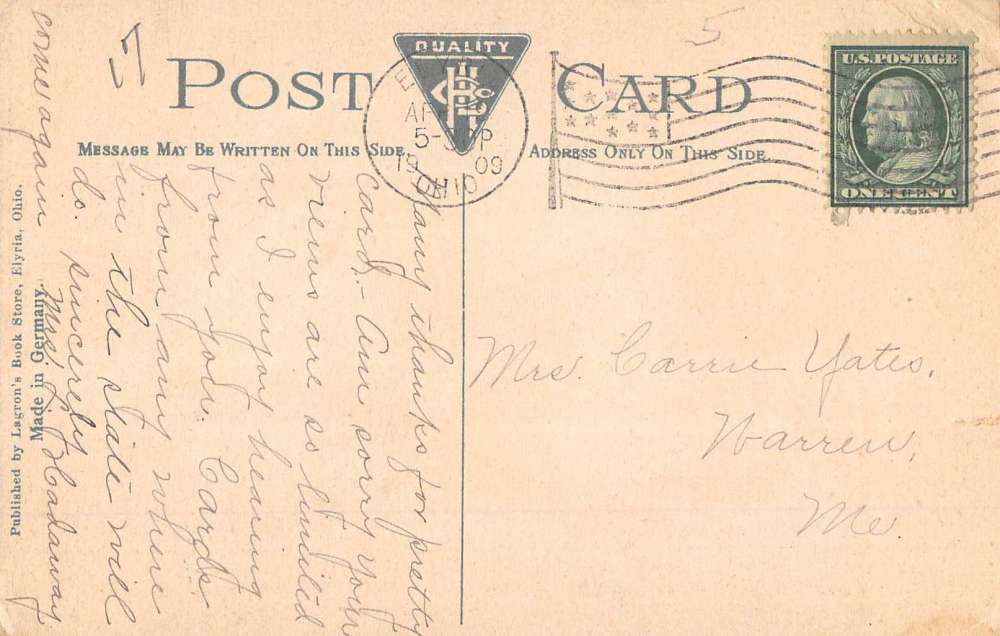 5
POST CARD
QUALITY
MESSAGE MAY BE WRITTEN ON THIS SIDE
ADDRESS ONLY ON THIS SIDE.
5-
P
1909
OHIO
U.S. POSTAGE
ONE CENT
Many thanks for pretty
card.- Am sorry your
views are so limited
as I enjoy hearing
from you. Cards
from any where
in the state will
do. sincerely
Mrs. Hadaway
come again
Mrs. Carrie Yates.
Warren,
Me.
Published by Lagron's Book Store, Elyria, Ohio.
Made in Germany.